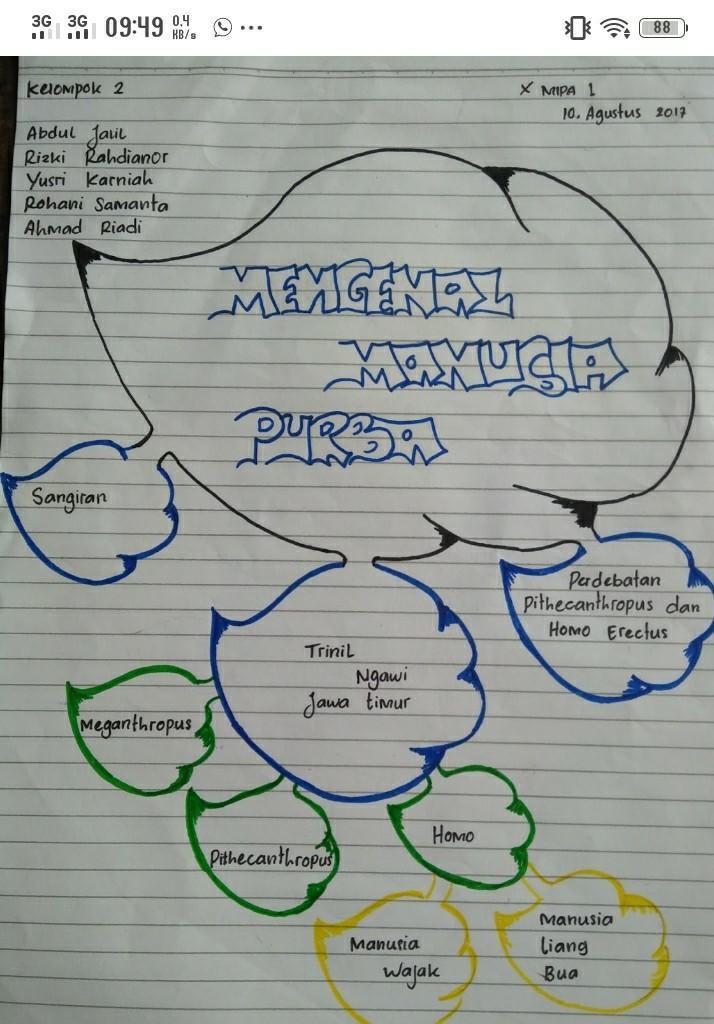 3G 3G 09:49 0.4 KB/s 88
Kelompok 2
X MIPA 1
10. Agustus 2017
Abdul Jalil
Rizki Rahdianor
Yusri Karniah
Rohani Samanta
Ahmad Riadi
MENGENAL
MANUSIA
PURBA
Sangiran
Perdebatan
Pithecanthropus dan
Homo Erectus
Trinil
Ngawi
Jawa timur
Meganthropus
Pithecanthropus
Homo
Manusia
Wajak
Manusia
Liang
Bua